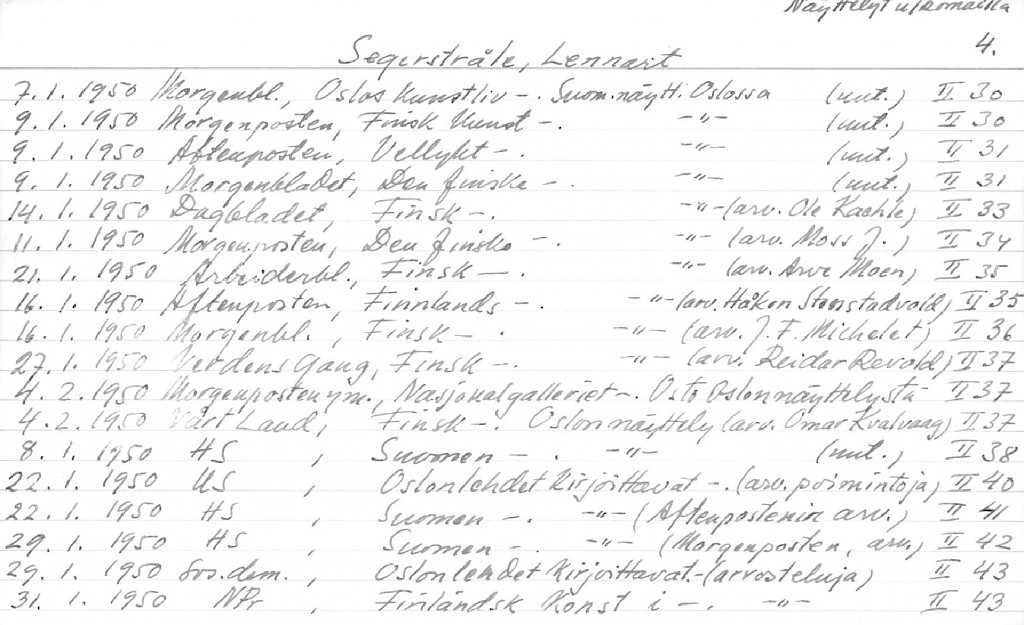 Näyttelyt ulkomailla
4.
Segerstråle, Lennart
7.1.1950 Morgenbl., Oslos Kunstliv -. Suom.näytt. Oslossa (uut.) II 30
9.1.1950 Morgenposten, Finsk Kunst -. -"- (uut.) II 30
9.1.1950 Aftenposten, Vellykt -. -"- (uut.) II 31
9.1.1950 Morgenbladet, Den finske -. -"- (uut.) II 31
14.1.1950 Dagbladet, Finsk -. -"- (arv. Ole Kaehle) II 33
11.1.1950 Morgenposten, Den finske -. -"- (arv. Moss J.) II 34
21.1.1950 Arbeiderbl., Finsk -. -"- (arv. Arve Moen) II 35
16.1.1950 Aftenposten, Finnlands -. -"- (arv. Håkon Stenstadvold) II 35
16.1.1950 Morgenbl., Finsk -. -"- (arv. J.F. Michelet) II 36
27.1.1950 Verdens Gang, Finsk -. -"- (arv. Reidar Revold) II 37
4.2.1950 Morgenposten ym., Nasjonalgalleriet -. Osto Oslon näyttelystä II 37
4.2.1950 Vårt Land, Finsk -. Oslon näyttely (arv. Omar Kvalvaag) II 37
8.1.1950 HS, Suomen -. -"- (uut.) II 38
22.1.1950 US, Oslon lehdet kirjoittavat -. (arv. poimintoja) II 40
22.1.1950 HS, Suomen -. -"- (Aftenpostenin arv.) II 41
29.1.1950 HS, Suomen -. -"- (Morgenposten, arv.) II 42
29.1.1950 Sos.dem., Oslon lehdet kirjoittavat -. (arvosteluja) II 43
31.1.1950 NPr, Finländsk Konst i -. -"- II 43